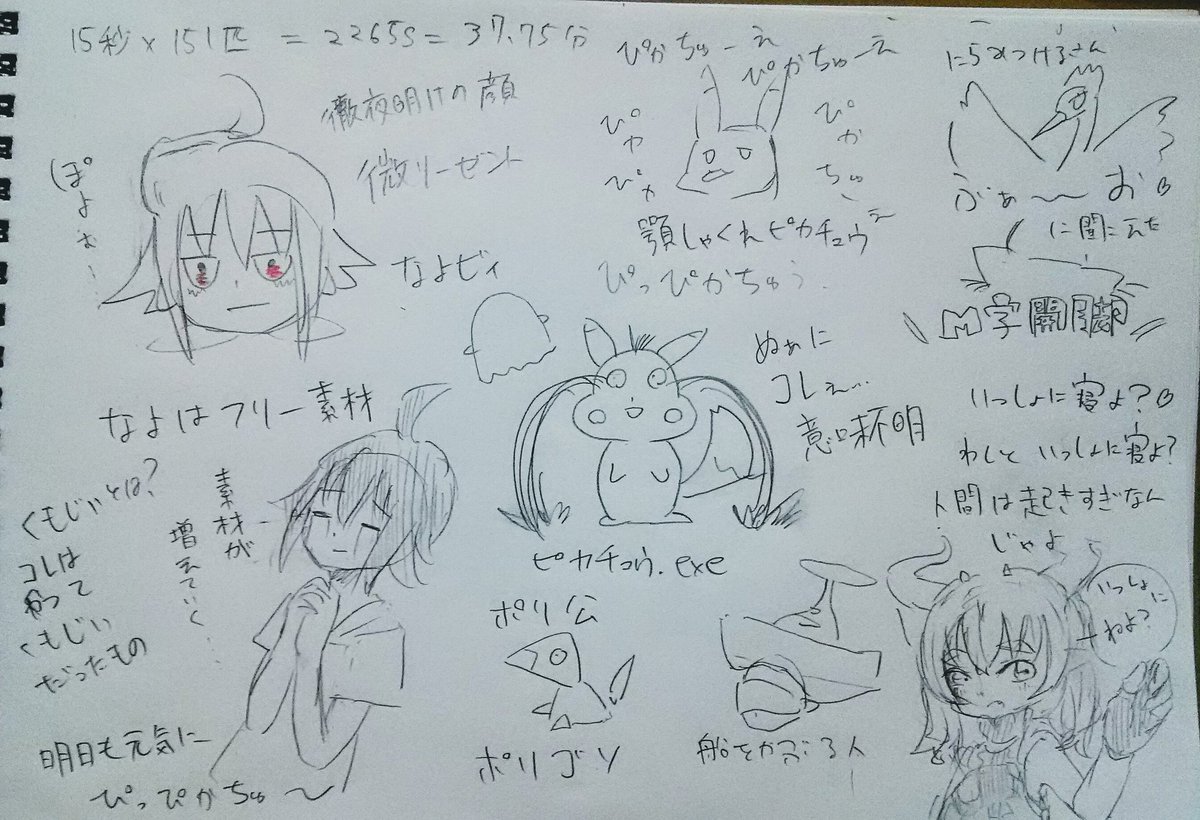 15秒×151匹 = 2265S = 37.75分
徹夜明けの顔
微リーゼント
ぽよぉー
なよビィ
ぴかちゅーえ
ぴかちゅーえ
ぴか
ぴか
ぴかちゅ
顎しゃくれピカチュウ
ぴっぴかちゅう.
にらみつけるさん
ふぁ〜〜お
に聞こえた
M字開脚
なよはフリー素材
素材が
増えていく
くもじぃとは?
コレは
かつて
くもじい
だったもの
明日も元気に
ぴっぴかちゅ〜
ぬぁに
コレぇ…
意味不明
ピカチュウ.exe
ポリ公
ポリゴン
船をかぶる人
いっしょに寝よ?
わしといっしょに寝よ?
人間は起きすぎなん
じゃよ
いっしょに
ねよ?